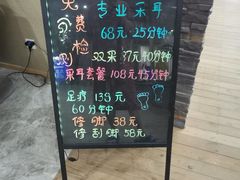 免费检测
专业采耳
68元25分钟
双采37元40分钟
采耳套餐108元45分钟
足疗138元
60分钟
修脚38元
修刮脚58元